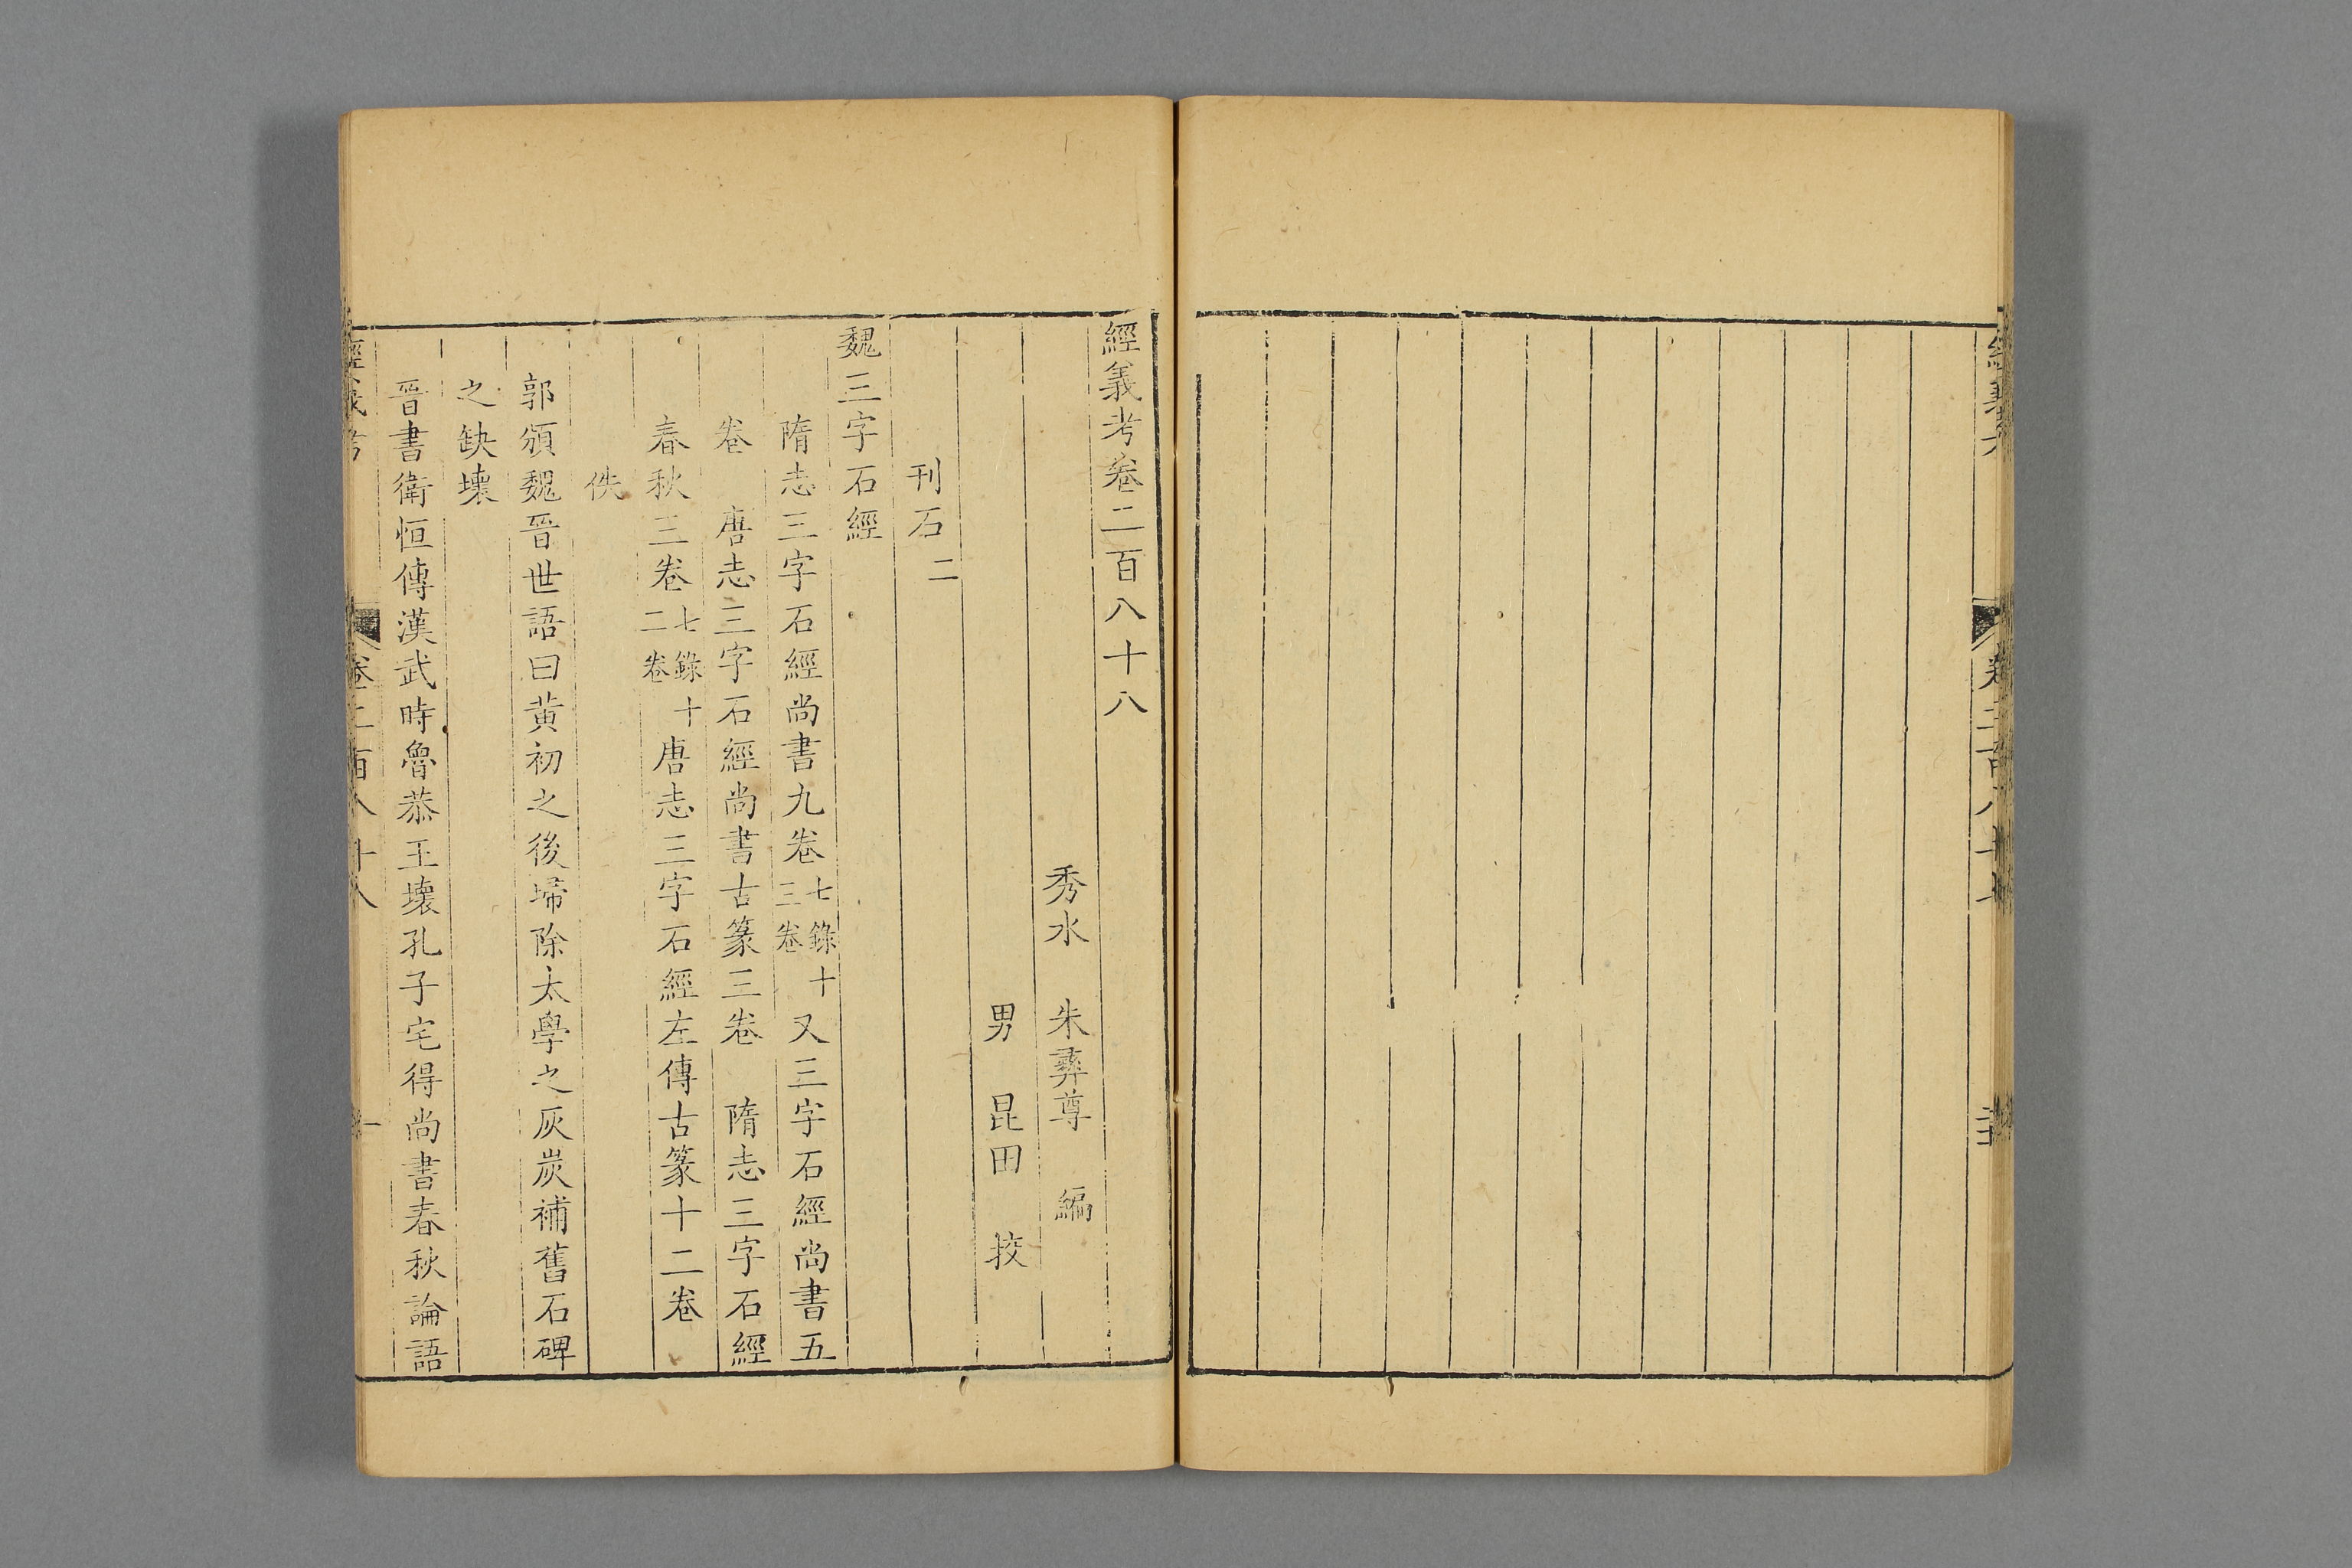 經義考卷二百八十八
秀水 朱彝尊 編
男 昆田 挍
刊石二
魏三字石經
隋志三字石經尚書九卷七錄十三卷又三字石經尚書五
卷 唐志三字石經尚書古篆三卷 隋志三字石經
春秋三卷七錄十二卷唐志三字石經左傳古篆十二卷
佚
郭頒魏晉世語曰黃初之後埽除太學之灰炭補舊石碑
之缺壞
晉書衛恒傳漢武時魯恭王壞孔子宅得尚書春秋論語
經義考 卷二百八十八 一